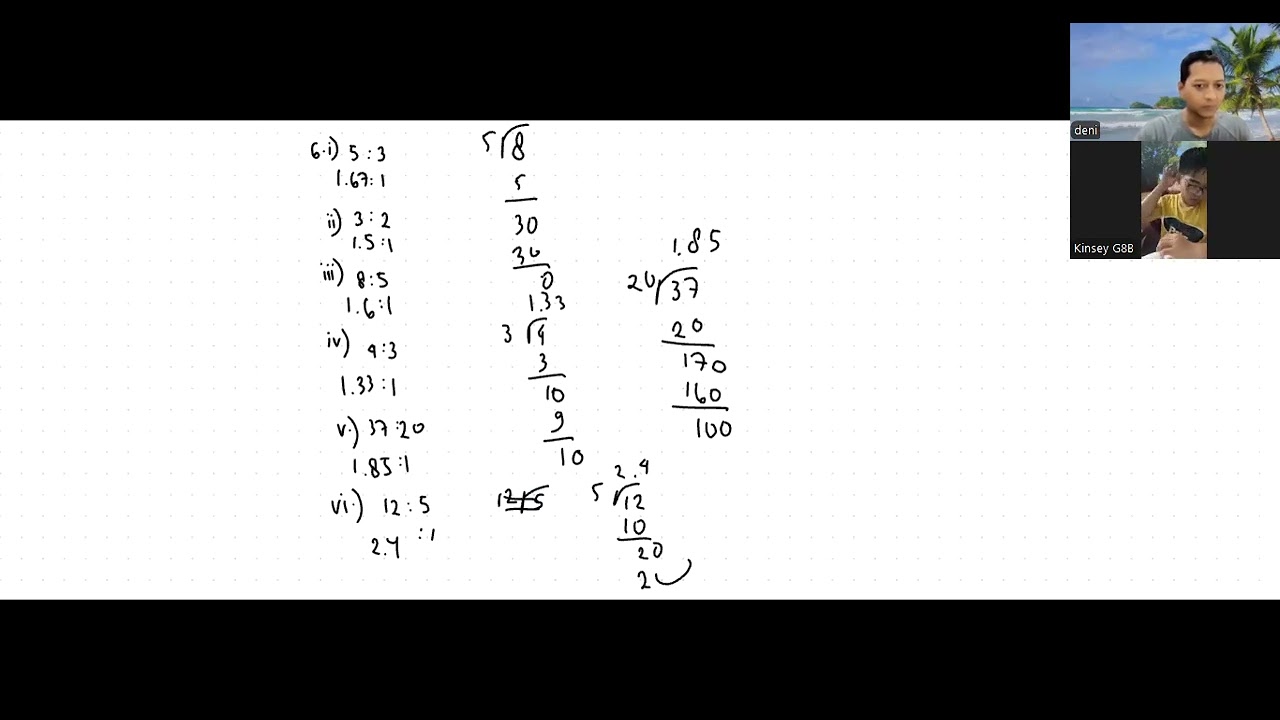 6.i) 5 : 3
1.67 : 1
ii) 3 : 2
1.5 : 1
iii) 8 : 5
1.6 : 1
iv) 4 : 3
1.33 : 1
v.) 37 : 20
1.85 : 1
vi.) 12 : 5
2.4 : 1
5 8
5
30
30
0
1.33
3 4
3
10
9
10
12 5
1.85
20 37
20
170
160
100
2.4
5 12
10
20
2
deni
Kinsey G8B